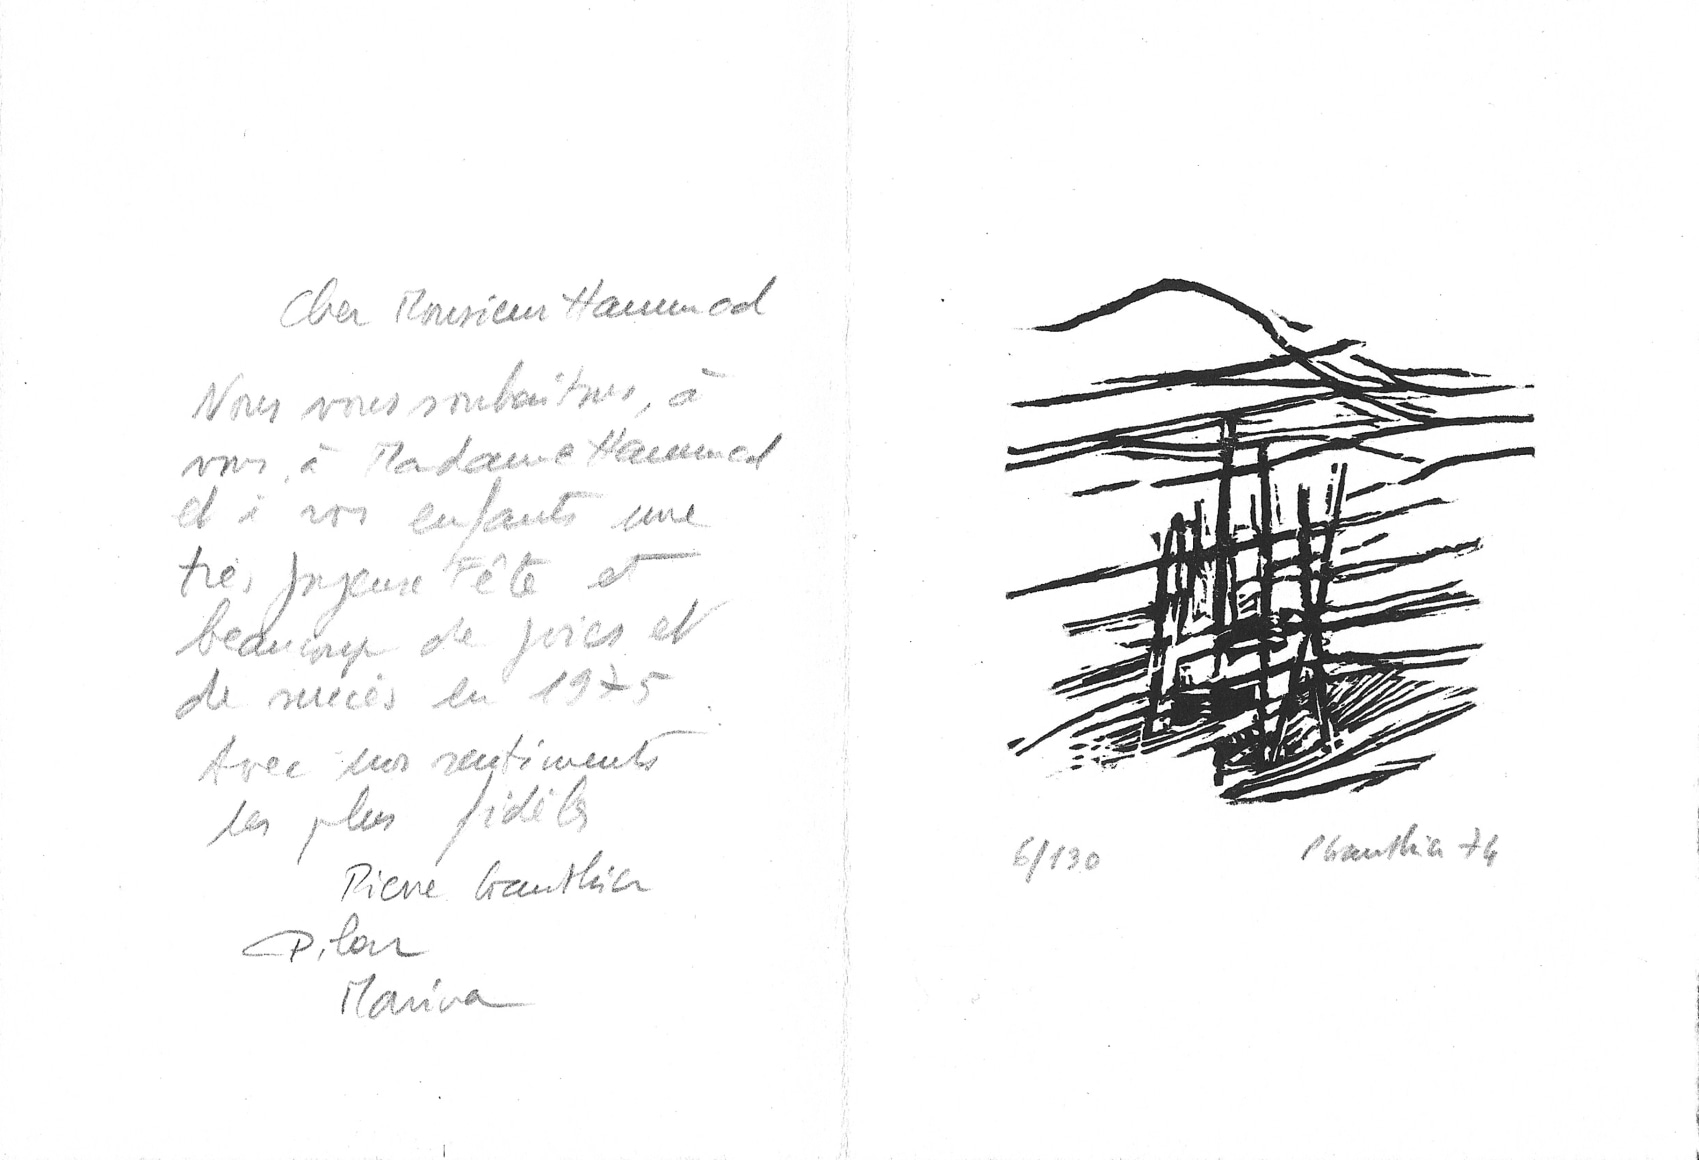 Cher Monsieur Hammad
Nous vous souhaitons, à
vous, à Madame Hammad
et à vos enfants une
très Joyeuse Fête et
beaucoup de joies et
de succès en 1975
Avec nos sentiments
les plus fidèles
Pierre Gauthier
Pilar
Marina
6/130
PGauthier 74